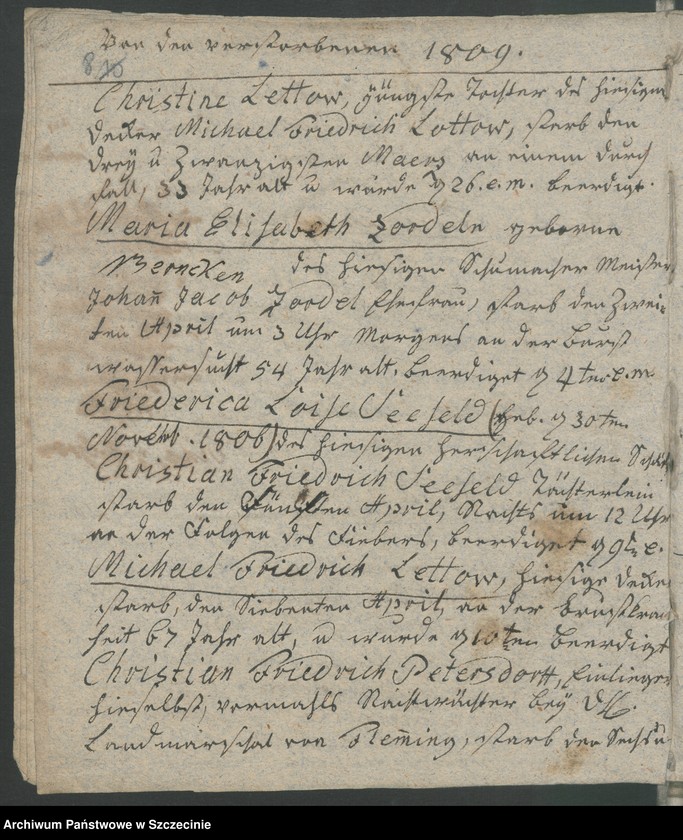 Von den verstorbenen 1809.
8 10
Christine Lettow, jüngste Tochter des hiesigen
Decker Michael Friedrich Lettow, starb den
drey u Zwanzigsten Maerz an einem durch
fall, 33 Jahr alt u wurde d 26. e. m. beerdigt.
Maria Elisabeth Zordeln geborne
Berncken des hiesigen Schumacher Meister
Johan̄ Jacob Zordel Ehefrau, starb den Zwei-
ten April um 3 Uhr Morgens an der Brust
wassersucht 54 Jahr alt, beerdiget d 4ten e. m.
Friederica Loise Seefeld (geb. d 30ten
Novemb. 1806) des hiesigen herrschaftlichen
Christian Friedrich Seefeld Töchterlein
starb den April, Nachts um 12 Uhr
an der Folgen des Fiebers, beerdiget d 9t. e.
Michael Friedrich Lettow, hiesige Decker
starb, den Siebenten April, an der Brustkran
heit 67 Jahr alt, u wurde d 10ten beerdigt
Christian Friedrich Petersdorff, Einlieger
hieselbst, vormahls Nachtwächter bey
Landmarschal von Flem̄ing, starb den Sechs u
Archiwum Państwowe w Szczecinie